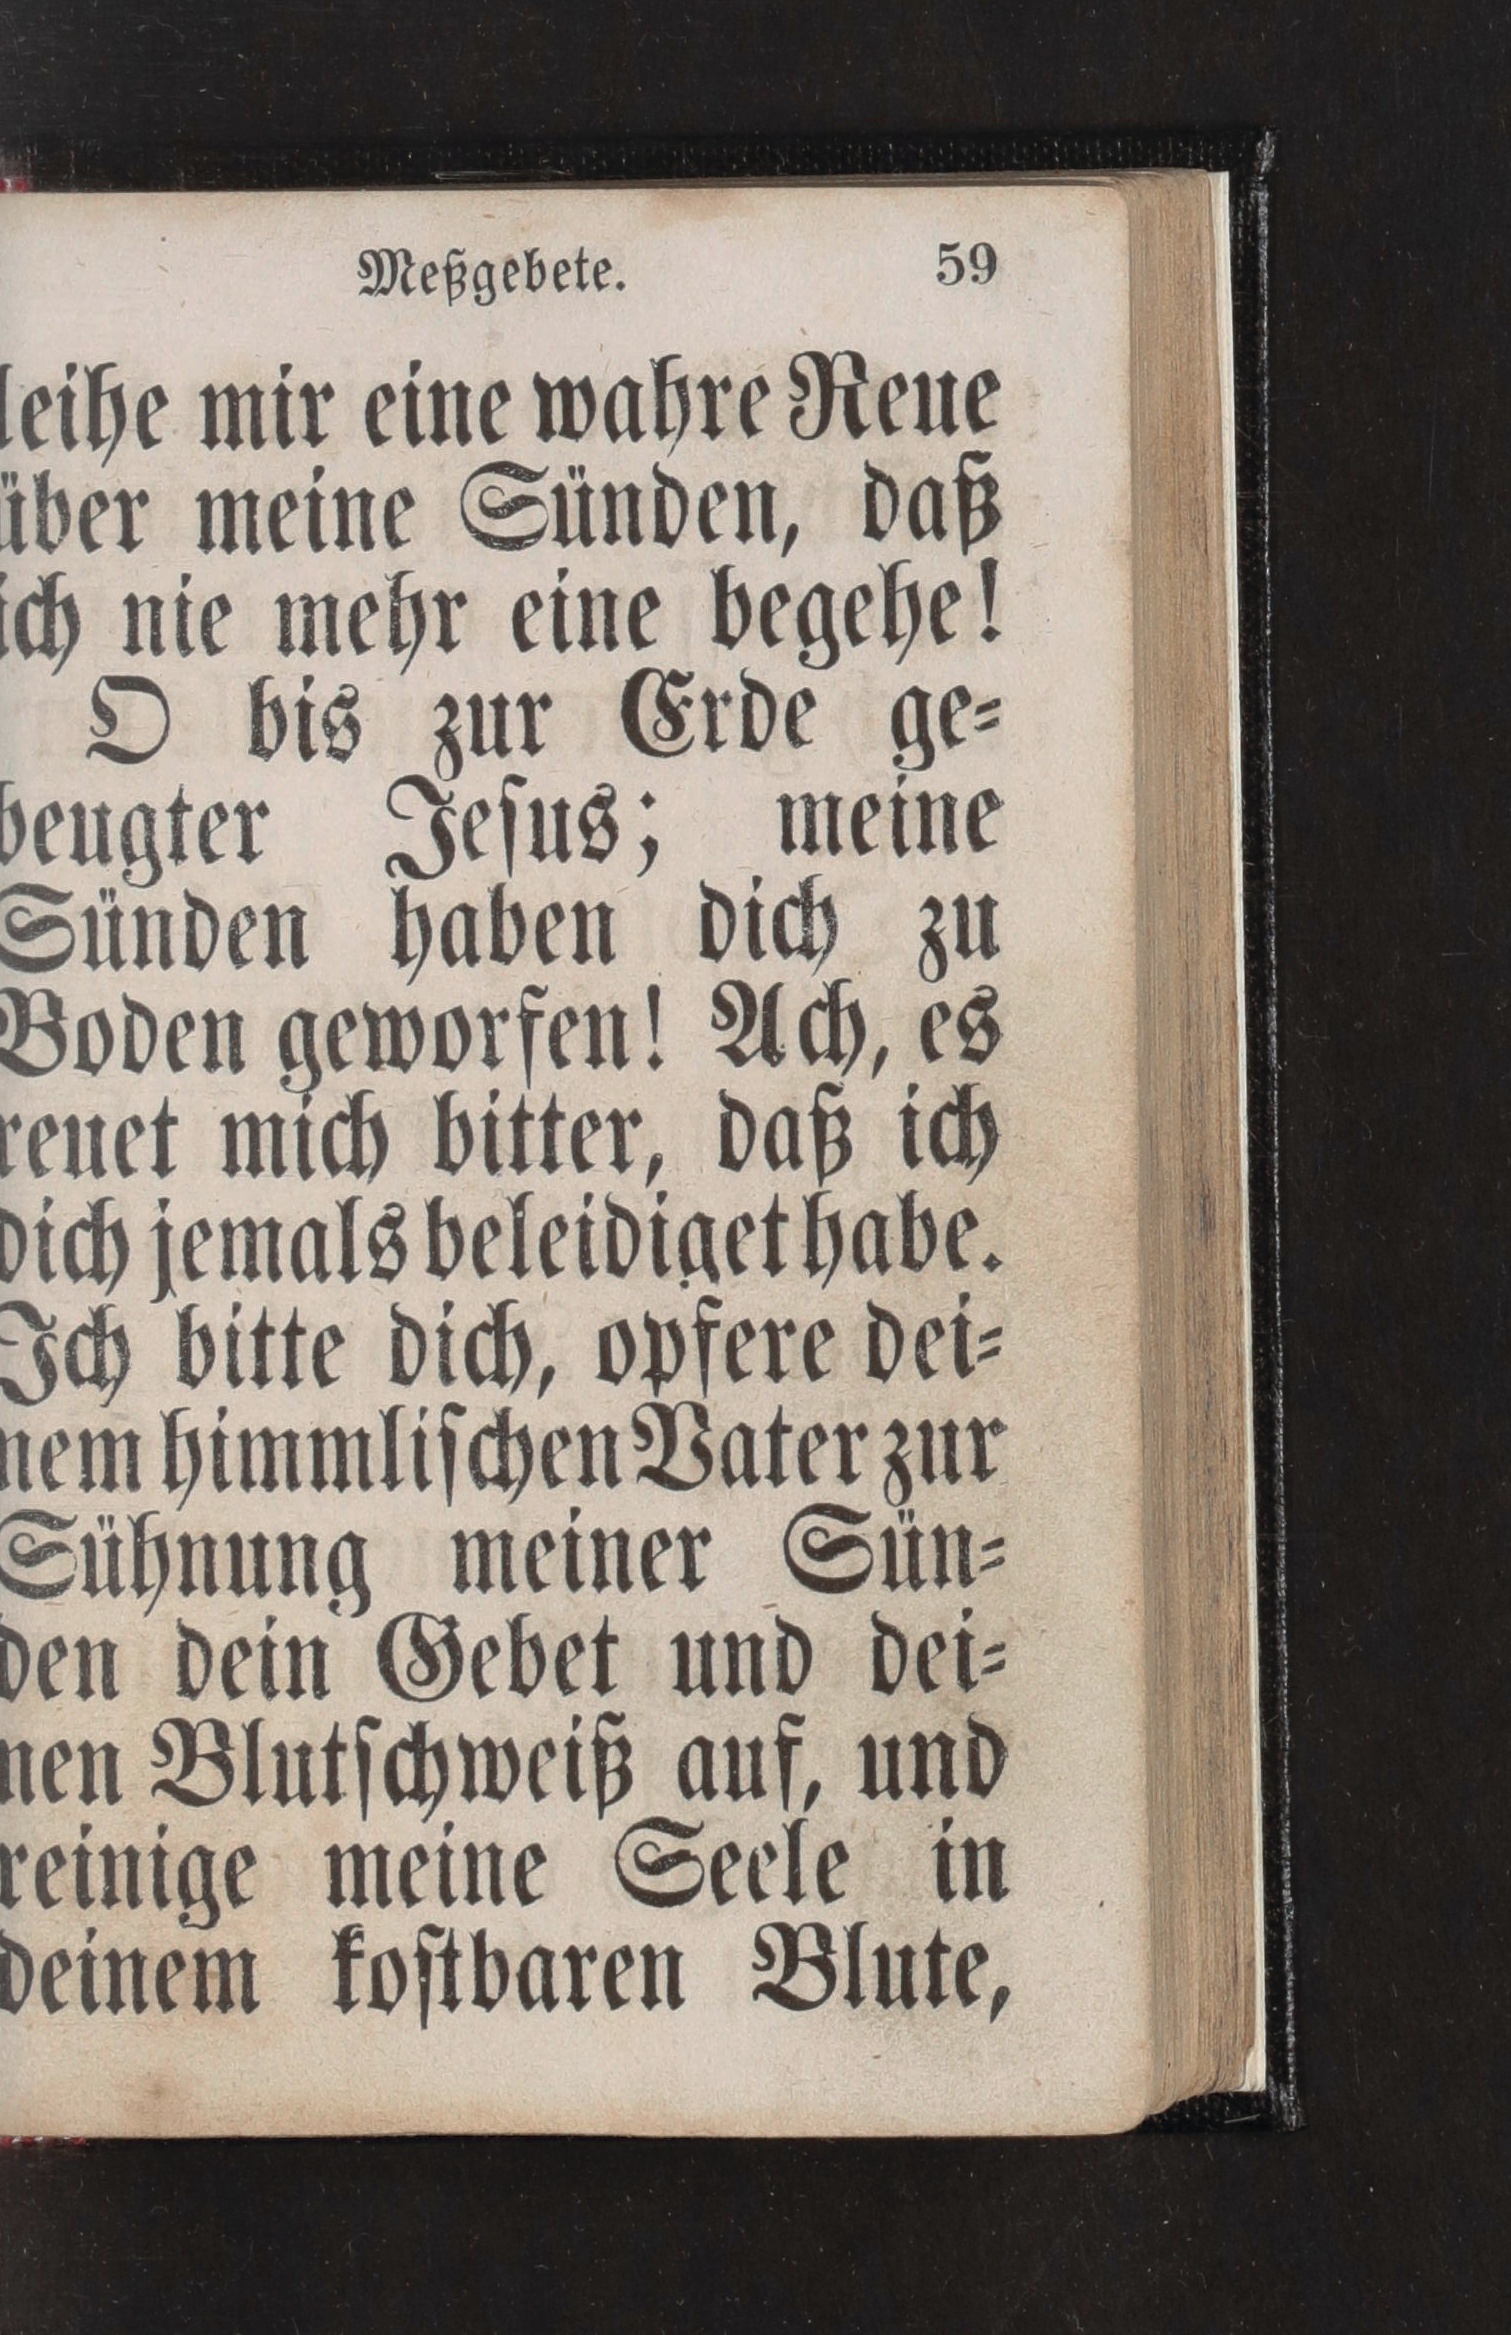 Meßgebete. 59
leihe mir eine wahre Reue
über meine Sünden, daß
ich nie mehr eine begehe!
O bis zur Erde ge=
beugter Jesus; meine
Sünden haben dich zu
Boden geworfen! Ach, es
reuet mich bitter, daß ich
dich jemals beleidiget habe.
Ich bitte dich, opfere dei=
nem himmlischen Vater zur
Sühnung meiner Sün=
den dein Gebet und dei=
nen Blutschweiß auf, und
reinige meine Seele in
deinem kostbaren Blute,